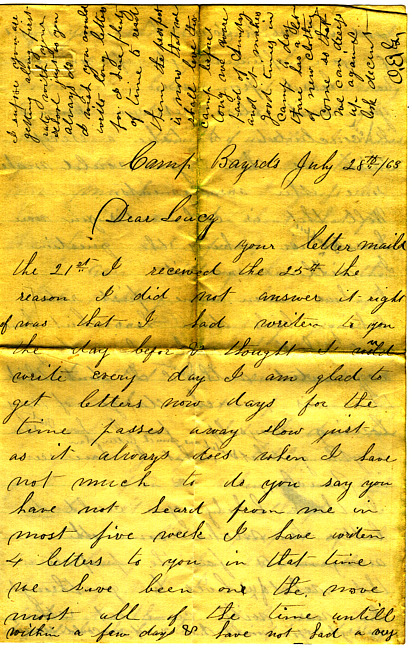 I supose you are
getting along first
rate with your
school for as you
always do
I wish you would
write long letters
for I have plenty
of time to read
them the prospect
is now that we
shall
camp here
long
and it makes
good times in
camp to day
there has a lot
of new clothing
Come so that
we can dress
up again
look decent
O.E.
Camp Bayrds July 28th/63
Dear Loucy
your letter maild
the 21st I received the 25th the
reason I did not answer it right
of was that I had writen to you
the day befor & thought I
write every day I am glad to
get letters now days for the
time passes away slow just
as it always does when I have
not much to do you say you
have not heard from me in
most five week I have writen
4 letters to you in that time
we have been one the move
most all of the time untill
within a few days & have not had a very